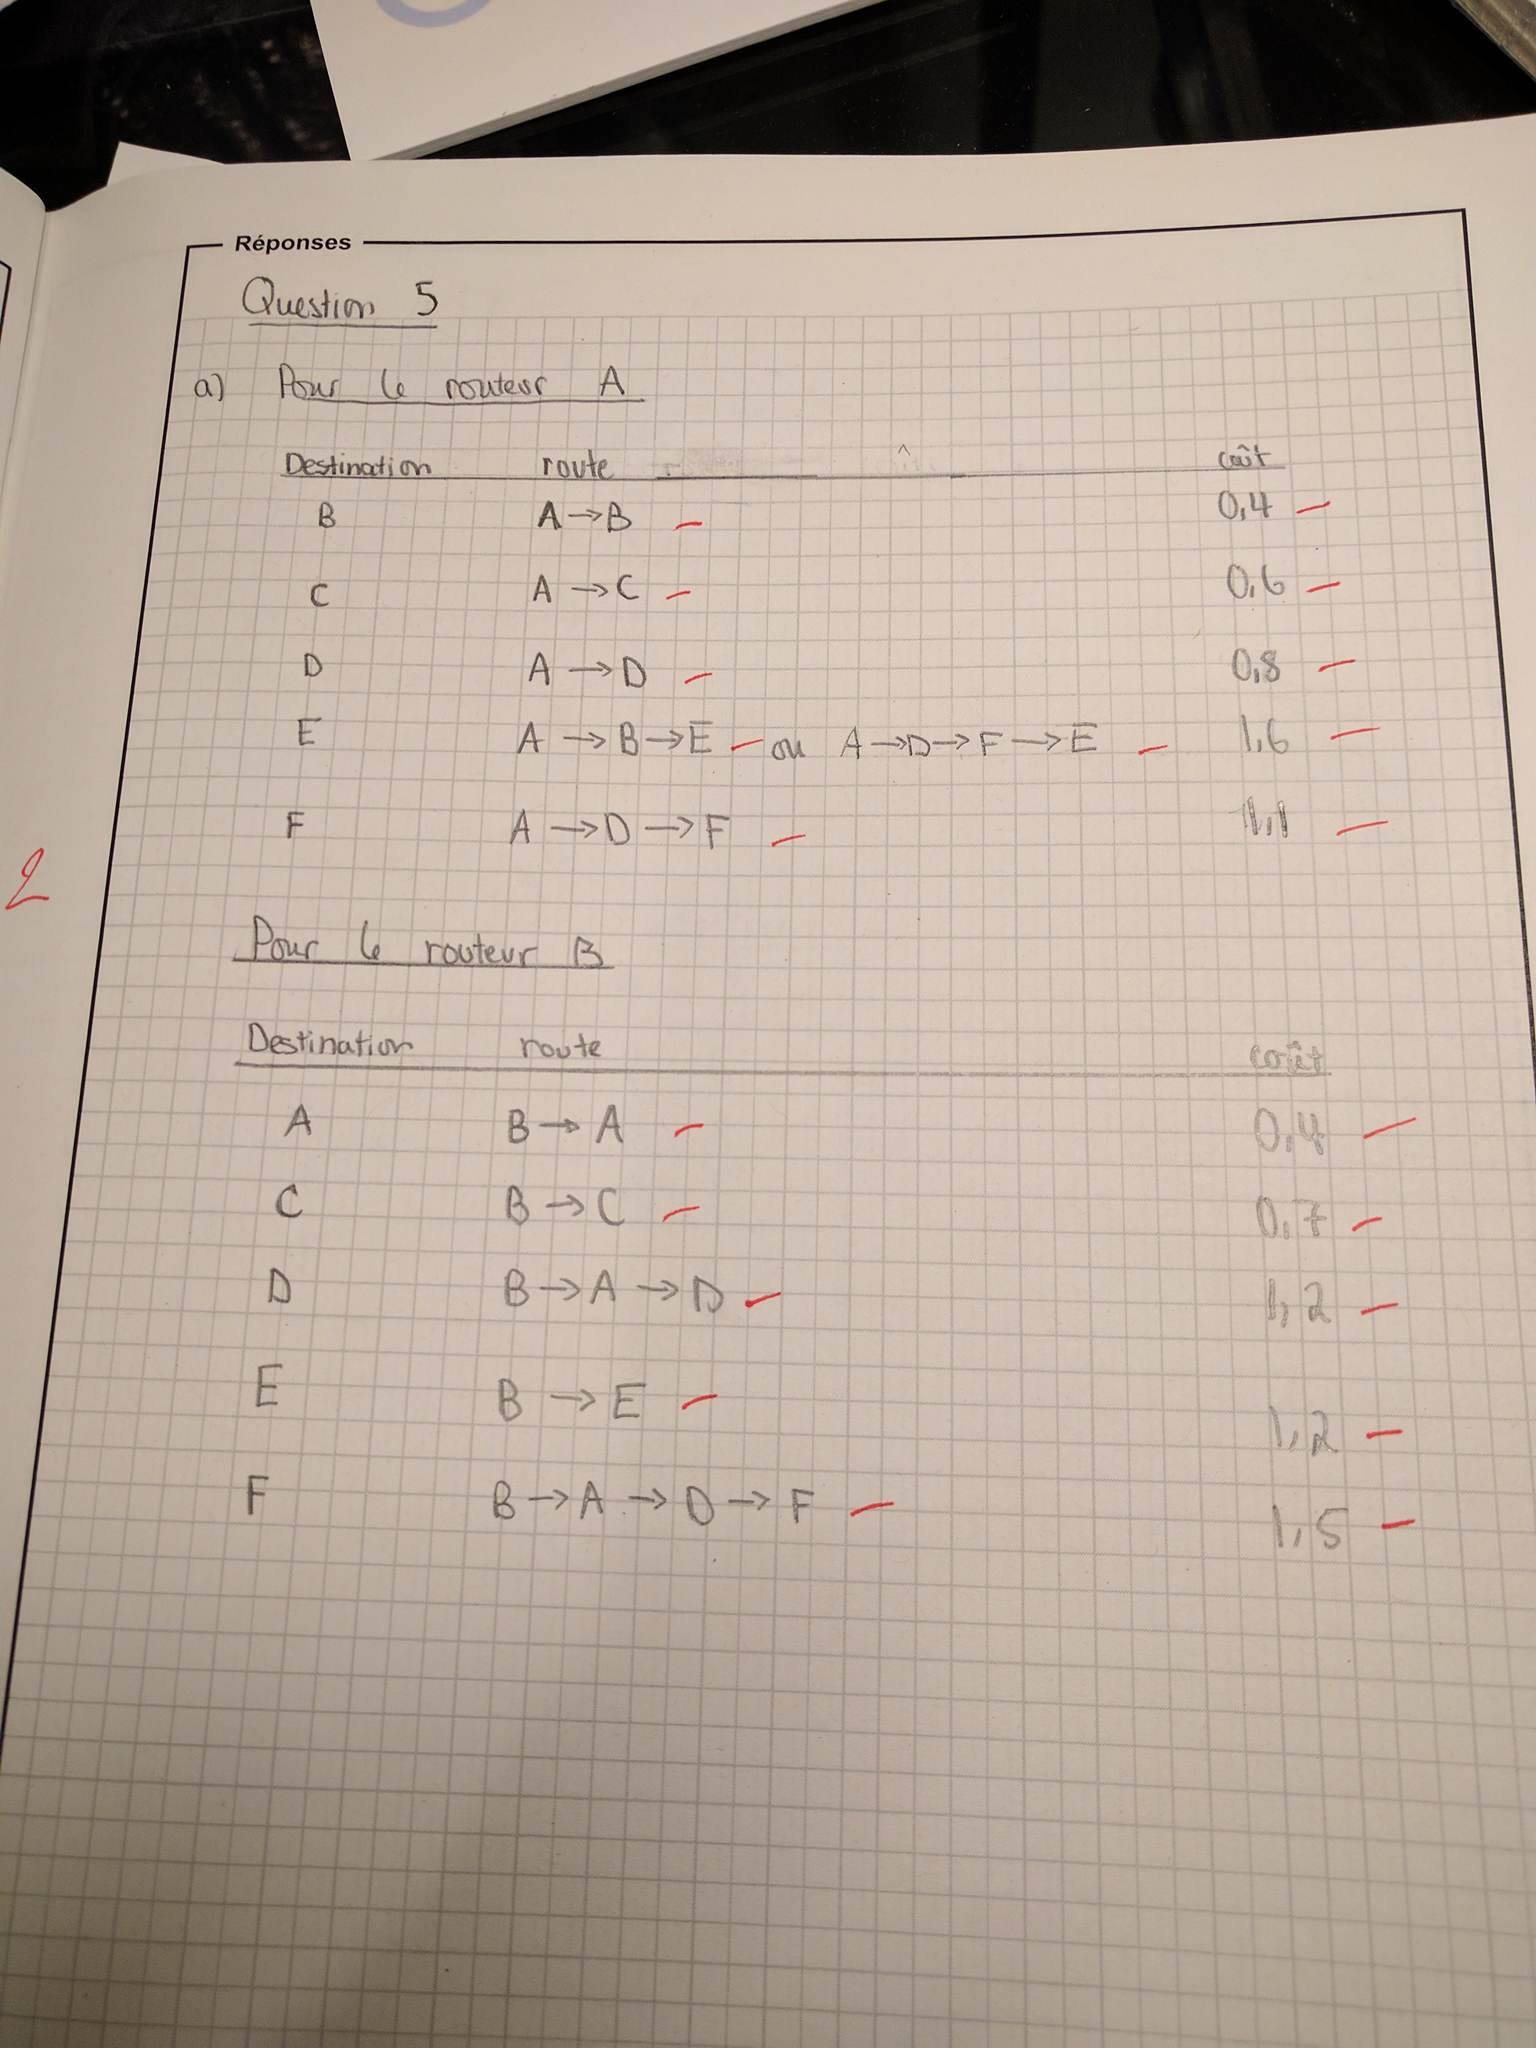 Réponses
Question 5
a) Pour le routeur A
Destination route coût
B A → B 0,4
C A → C 0,6
D A → D 0,8
E A → B → E ou A → D → F → E 1,6
F A → D → F 1,1
2
Pour le routeur B
Destination route coût
A B → A 0,4
C B → C 0,7
D B → A → D 1,2
E B → E 1,2
F B → A → D → F 1,5